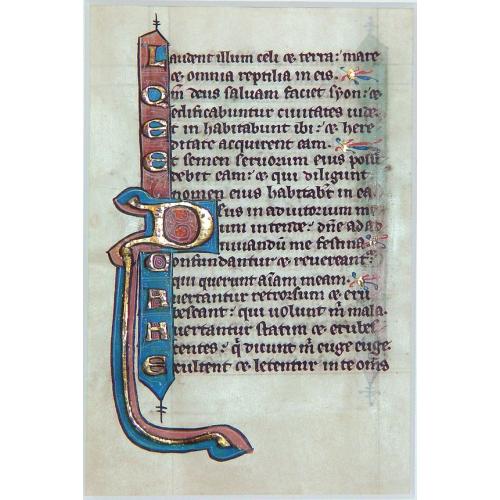 Laudent illum celi ⁊ terra: mare
⁊ omnia reptilia in eis.
Qm̄ deus saluam faciet syon: ⁊
edificabuntur ciuitates iude.
Et in habitabunt ibi: ⁊ here
ditate acquirent eam.
Et semen seruorum eius possi
debit eam: ⁊ qui diligunt
nomen eius habitab̄t in ea.
Deus in adiutorium me
um intende: dn̄e ad ad
iuuandū me festina.
Confundantur ⁊ reuereantᵘʳ:
qui querunt aīam meam.
Auertantur retrorsum ⁊ eru
bescant: qui uolunt m̄ mala.
Auertantur statim ⁊ erubes
centes: q̄ dicunt m̄ euge euge.
Exultent ⁊ letentur in te om̄s